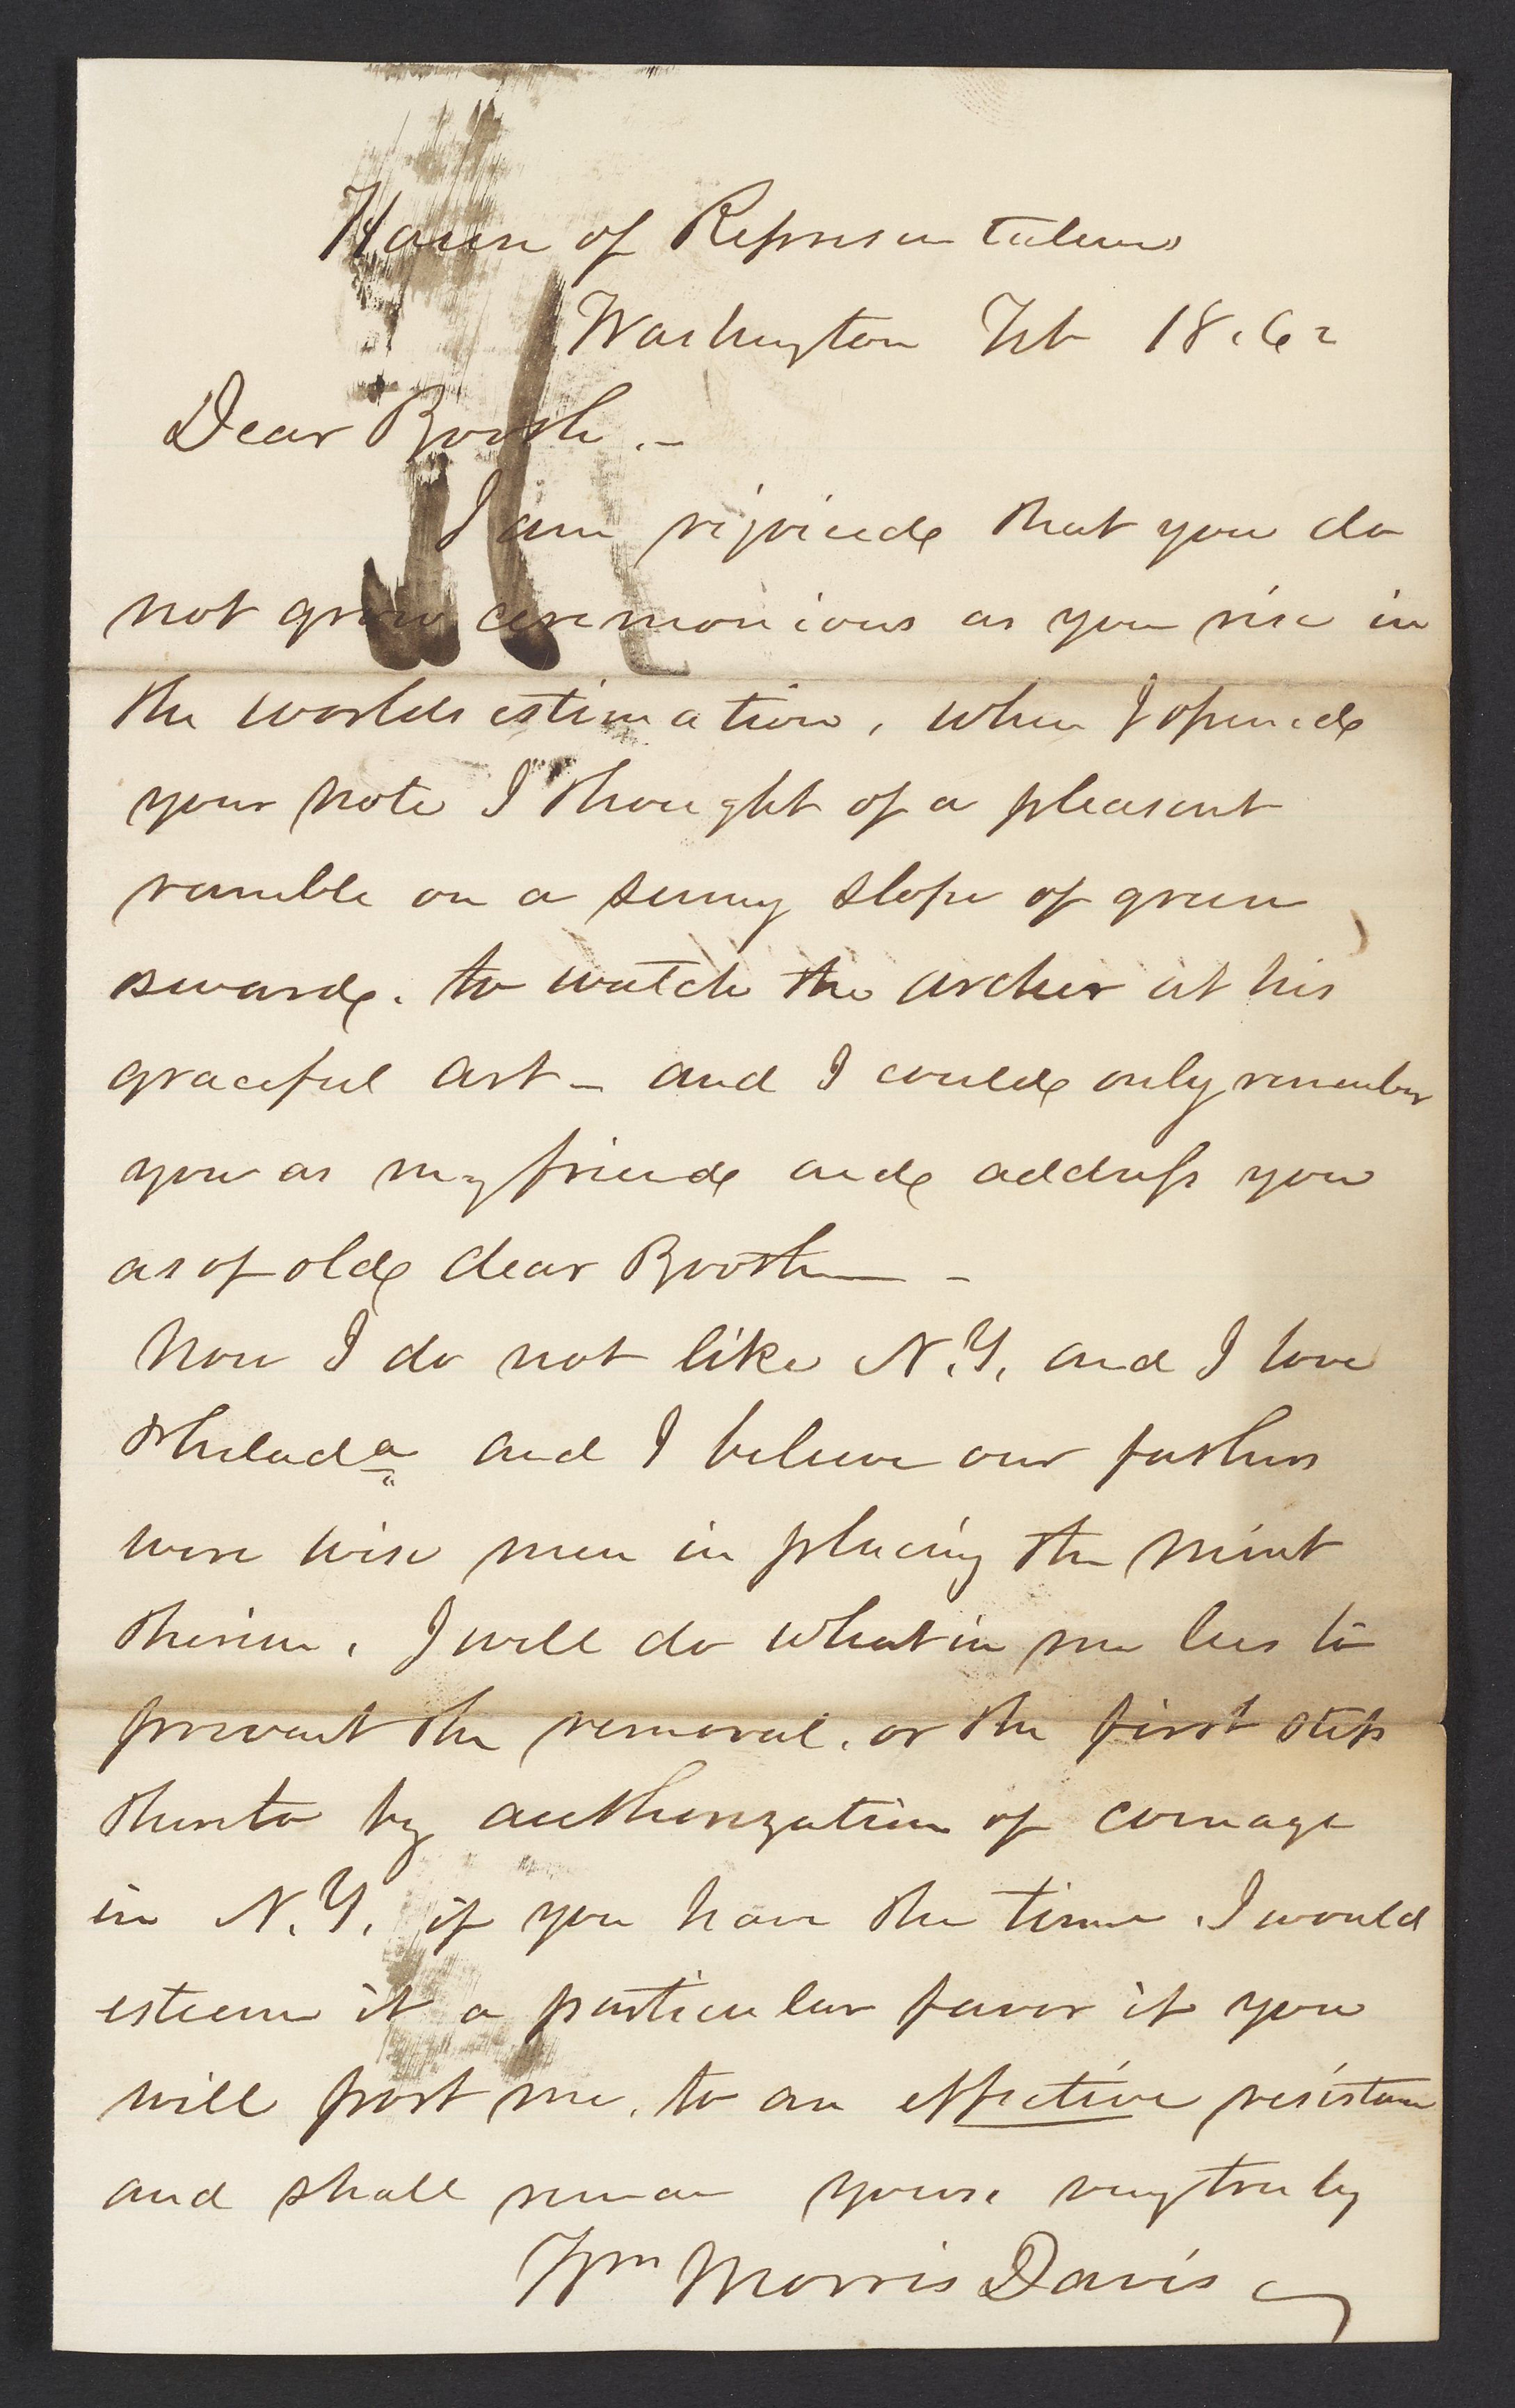 House of Representatives
Washington Feb 18.62
Dear Booth.-
I am rejoiced that you do
not grow ceremonious as you rise in
the worlds estimation, when I opened
your note I thought of a pleasant
ramble on a sunny slope of green
sward. to watch the archer at his
graceful art - and I could only remember
you as my friend and address you
as of old dear Booth -
Now I do not like N.Y. and I love
Philada and I believe our fathers
were wise men in placing the mint
therein, I will do what in me lies to
prevent the removal. or the first step
thereto by authorization of coinage
in N.Y. if you have the time. I would
esteem it a particular favor if you
will post me. to an effective resistance
and shall remain yours very truly
Wm Morris Davis